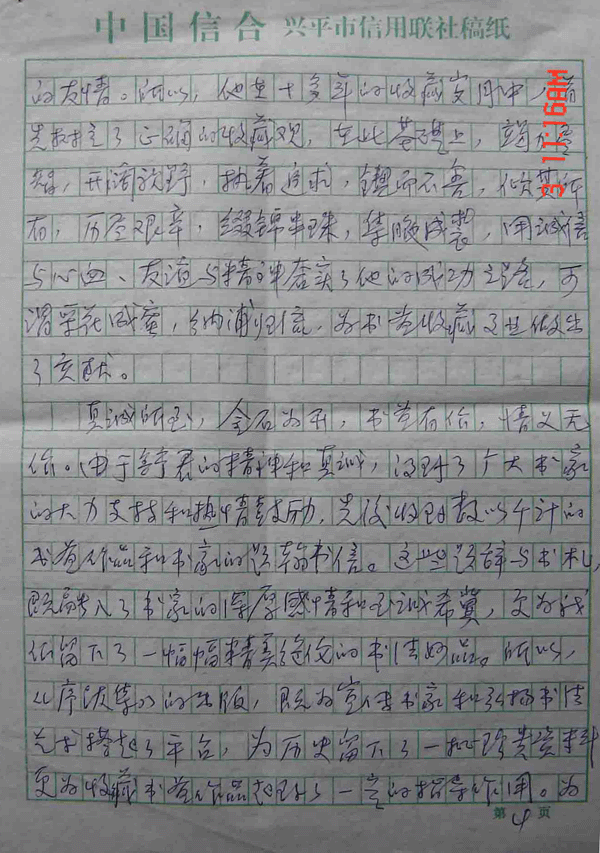 中国信合 兴平市信用联社稿纸
的友情。所以，他在十多年的收藏岁月中，首
先树立了正确的收藏观，在此基础上，竭力尽
智，开阔视野，执着追求，锲而不舍，倾其所
有，历尽艰辛，缀锦串珠，集腋成裘，用诚信
与心血、友谊与精神奏实了他的成功之路，可
谓采花成蜜，纳浦归流，为书画收藏事业做出
了贡献。
真诚所至，金石为开，书画有价，情义无
价。由于李君的精神和真诚，得到了广大书家
的大力支持和热情鼓励，先后收到数以千计的
书画作品和书家的题辞书信。这些题辞与书札，
既融入了书家的深厚感情和至诚希冀，又为我
们留下了一幅幅精美绝伦的书法妙品。所以，
《序跋集》的出版，既为宣传书家和弘扬书法
艺术搭起了平台，为历史留下了一批珍贵资料
更为收藏书画作品起到了一定的指导作用。为
第 4 页